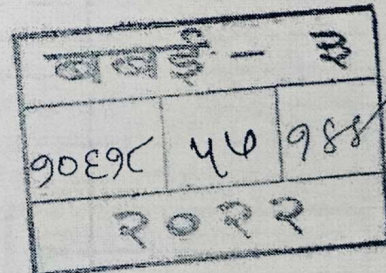 बबई - ३
१०६१८ ५७ १४४
२०२२